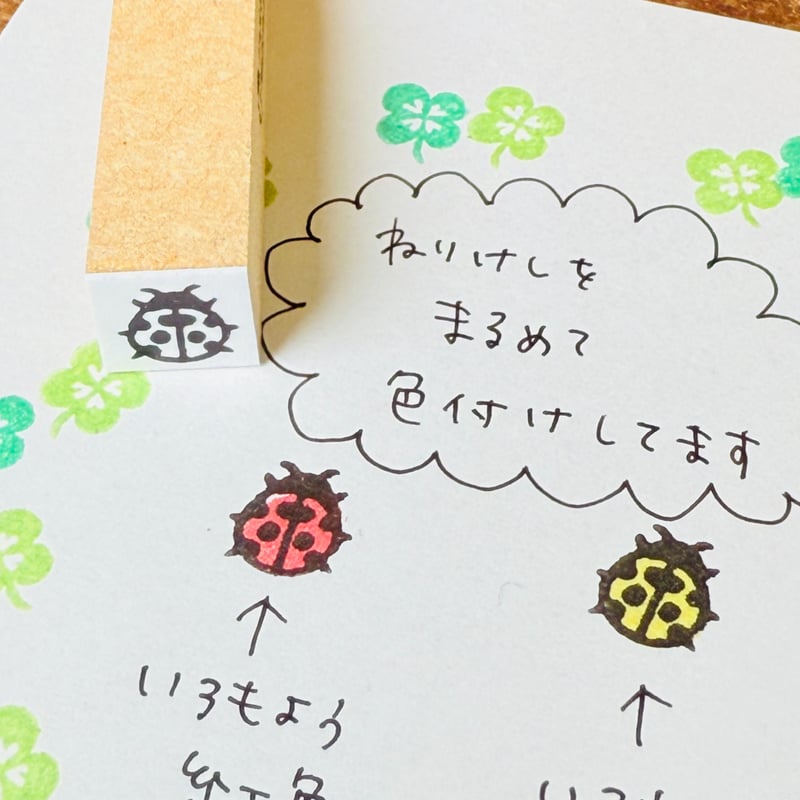 ねりけしを
まるめて
色付けしてます
いろもよう